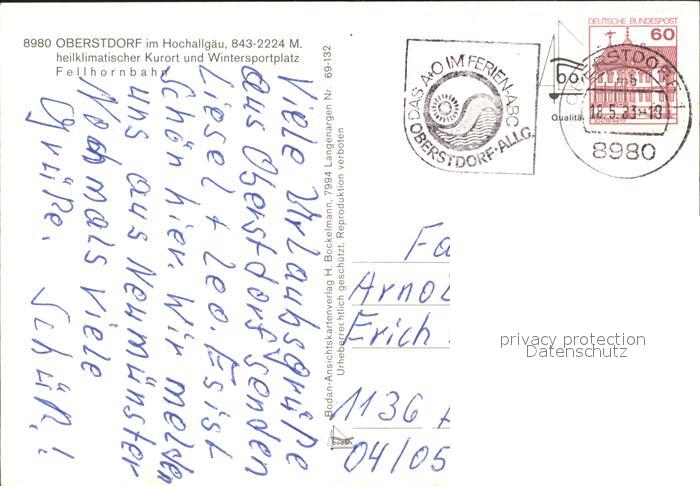 8980 OBERSTDORF im Hochallgäu, 843-2224 M.
heilklimatischer Kurort und Wintersportplatz
Fellhornbahn
Viele Urlaubsgrüße
aus Oberstdorf senden
Liesel + Leo. Es ist
schön hier. Wir melden
uns aus Neumünster
Nochmals viele
Grüße. Schüß!
Bodan-Ansichtskartenverlag H. Bockelmann, 7994 Langenargen Nr. 69-132
Urheberrechtlich geschützt. Reproduktion verboten
bodan
DAS A+O IM FERIEN-ABC
OBERSTDORF-ALLG.
bo
Qualitä
DEUTSCHE BUNDESPOST
60
OBERSTDORF 1
mb
18.5.83-18
8980
Fa
Arnol
Erich
1136
04/05
privacy protection
Datenschutz